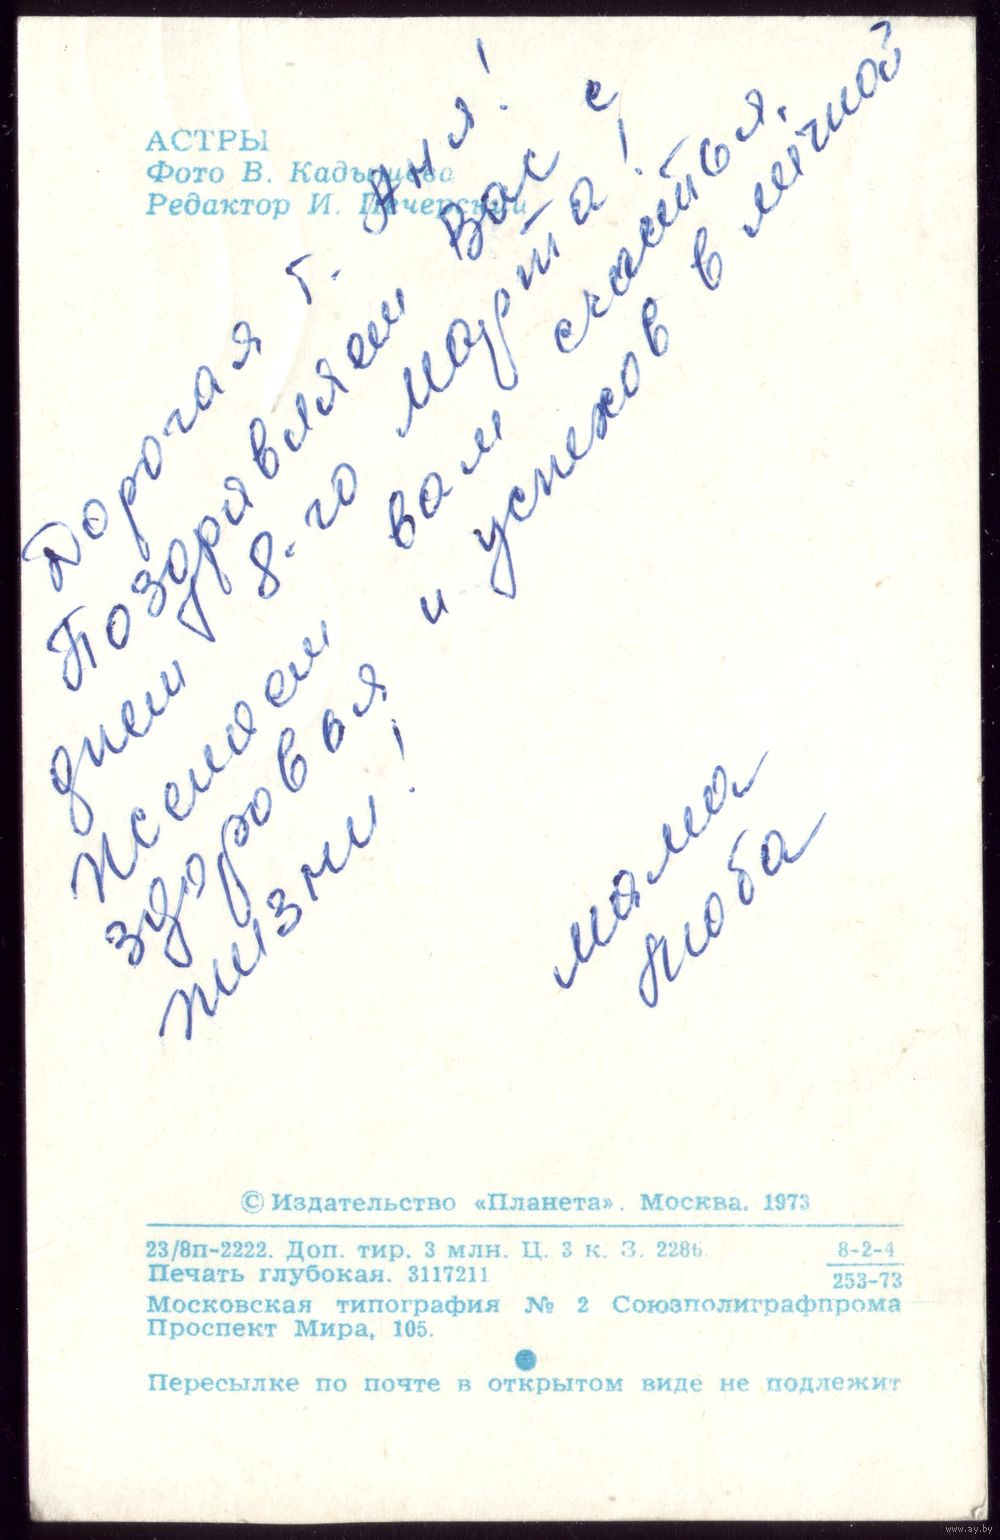 АСТРЫ
Фото В. Кадышева
Редактор И. Печерский
Дорогая т. Аня!
Поздравляем Вас с
днем 8-го марта!
Желаем вам счастья,
здоровья и успехов в личной
жизни!
мама
люба
© Издательство «Планета». Москва. 1973
23/8п-2222. Доп. тир. 3 млн. Ц. 3 к. З. 2286
8-2-4
Печать глубокая. 3117211
253-73
Московская типография № 2 Союзполиграфпрома
Проспект Мира, 105.
Пересылке по почте в открытом виде не подлежит
www.ay.by